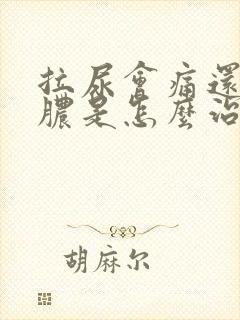 拉尿會痛還
膿是怎麼治
胡麻尔